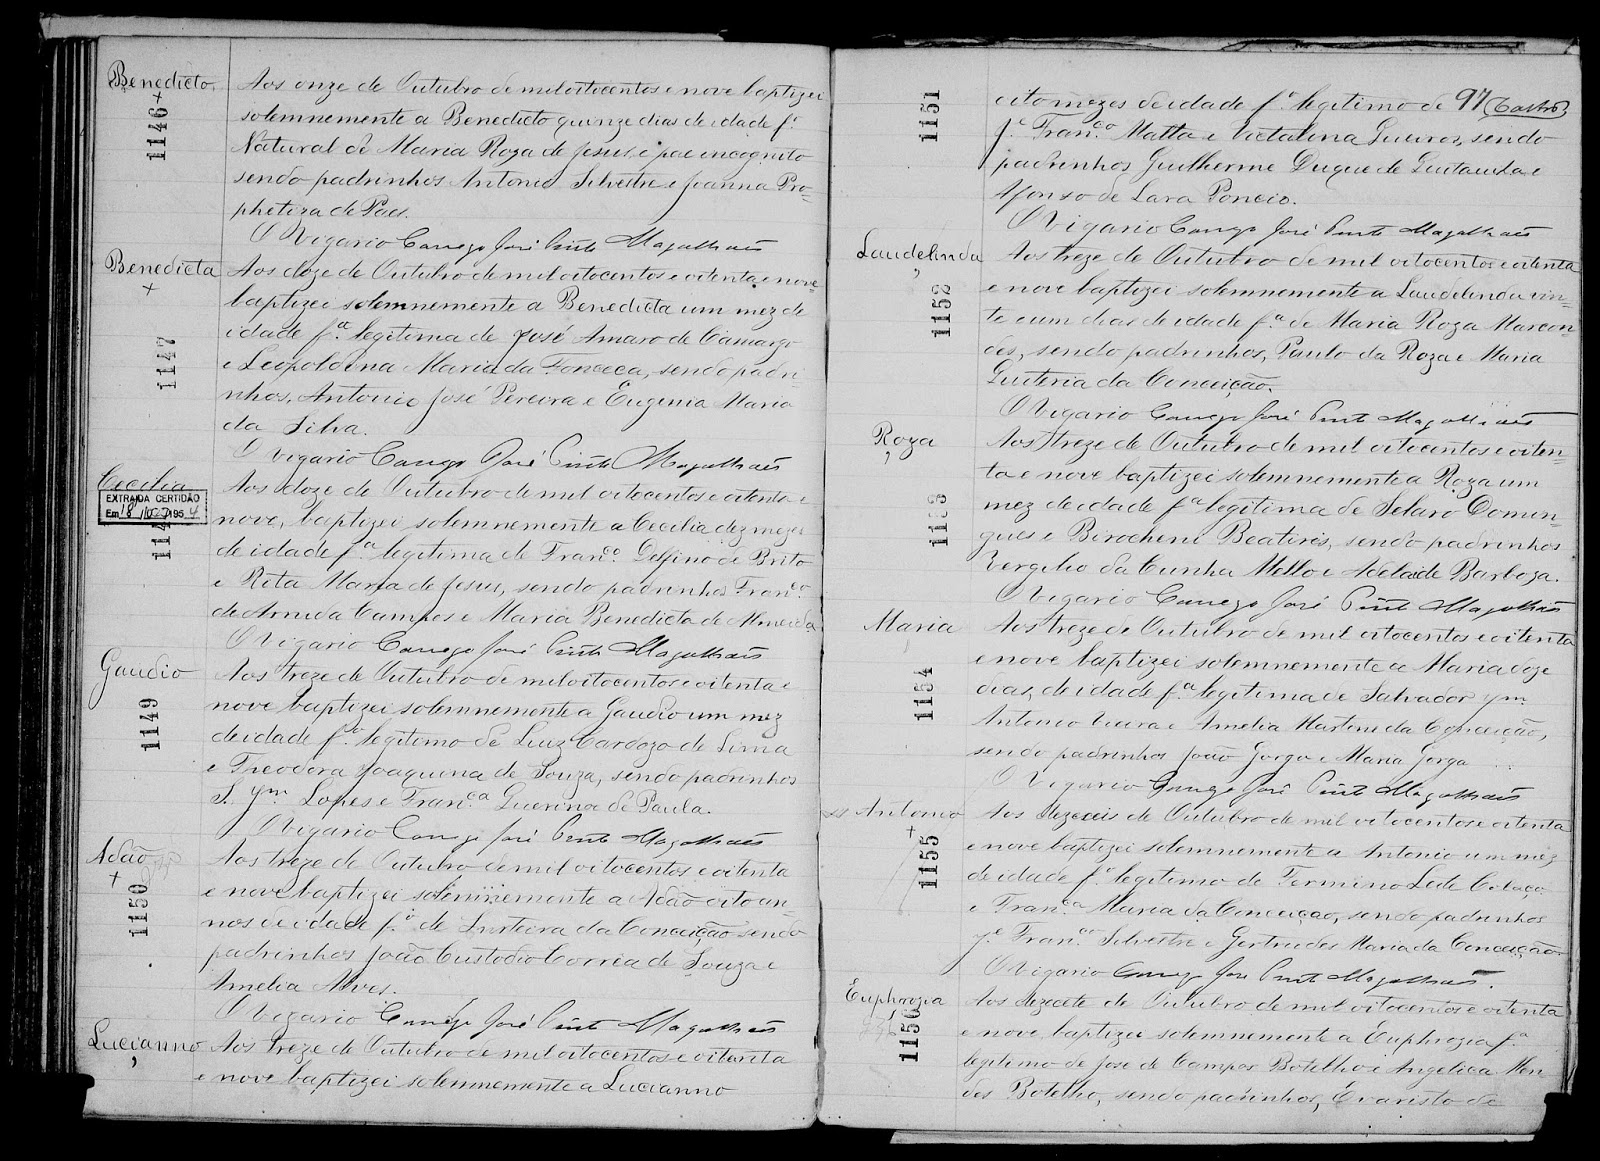 Benedicto
1146
Aos onze de Outubro de mil oitocentos e nove baptizei
solemnemente a Benedicto quinze dias de idade fº
Natural de Maria Roza de Jesus, e pae incognito
sendo padrinhos Antonio Silvestre e Joanna Pro-
phetiza de Paes.
O Vigario Conego José Pinto Magalhaẽs
Benedicta
1147
Aos doze de Outubro de mil oitocentos e oitenta e nove
baptizei solemnemente a Benedicta um mez de
idade fª legitima de José Amaro de Camargo
e Leopoldina Maria da Fonceca, sendo padri-
nhos, Antonio José Pereira e Eugenia Maria
da Silva.
O Vigario Conego José Pinto Magalhaẽs
Cecilia
EXTRAIDA CERTIDÃO
Em 18 195 4
114
Aos doze de Outubro de mil oitocentos e oitenta e
nove, baptizei solemnemente a Cecilia dez mezes
de idade fª legitima de Franco Delfino de Brito
e Rita Maria de Jesus, sendo padrinhos Franco
de Arruda Campos e Maria Benedicta de Almeida
O Vigario Conego José Pinto Magalhaẽs
Gaudio
1149
Aos treze de Outubro de mil oitocentos e oitenta e
nove baptizei solemnemente a Gaudio um mez
de idade fº legitimo de Luiz Cardozo de Lima
e Treodora Joaquina de Souza, sendo padrinhos
Lopes e Franca Guerina de Paula.
O Vigario Conego José Pinto Magalhaẽs
Adão
1150
Aos treze de Outubro de mil oitocentos e oitenta
e nove baptizei solemnemente a Adão oito an-
nos de idade fº de da Conceição sendo
padrinhos João Custodio Correia de Souza e
Amelia Alves.
O Vigario Conego José Pinto Magalhaẽs
Lucianno
Aos treze de Outubro de mil oitocentos e oitenta
e nove baptizei solemnemente a Lucianno
97 Castro
1151
oito mezes de idade fº legitimo de
Je Franco Matta e Victalina sendo
padrinhos Guilherme Duque de e
Afonso de Lara Poncio.
O Vigario Conego José Pinto Magalhaẽs
Laudelinda
1152
Aos treze de Outubro de mil oitocentos e oitenta
e nove baptizei solemnemente a Laudelinda vin-
te e um dias de idade fª de Maria Roza Marcon-
des, sendo padrinhos, Paulo da Roza e Maria
Guiteria da Conceição.
O Vigario Conego José Pinto Magalhaẽs
Roza
1153
Aos treze de Outubro de mil oitocentos e oiten-
ta e nove baptizei solemnemente a Roza um
mez de idade fª legitima de Domin-
gues e Beatiris, sendo padrinhos
Vergilio da Cunha Mello e Adelaide Barboza.
O Vigario Conego José Pinto Magalhaẽs
Maria
1154
Aos treze de Outubro de mil oitocentos e oitenta
e nove baptizei solemnemente a Maria doze
dias, de idade fª legitima de Salvador
Antonio Vieira e Amelia Martins da Conceição,
sendo padrinhos João Gorga e Maria Gorga
O Vigario Conego José Pinto Magalhaẽs
Antonio
1155
Aos dezeseis de Outubro de mil oitocentos e oitenta
e nove baptizei solemnemente a Antonio um mez
de idade fº legitimo de Fermino Colaço
e Franca Maria da Conceição, sendo padrinhos
Je Franco Silvestre e Gertrudes Maria da Conceição.
O Vigario Conego José Pinto Magalhaẽs.
Euphrozia
1156
Aos dezecete de Outubro de mil oitocentos e oitenta
e nove baptizei solemnemente a Euphrozia fª
legitima de José de Campos Botelho e Angelica Men-
des Botelho, sendo padrinhos, Evaristo de